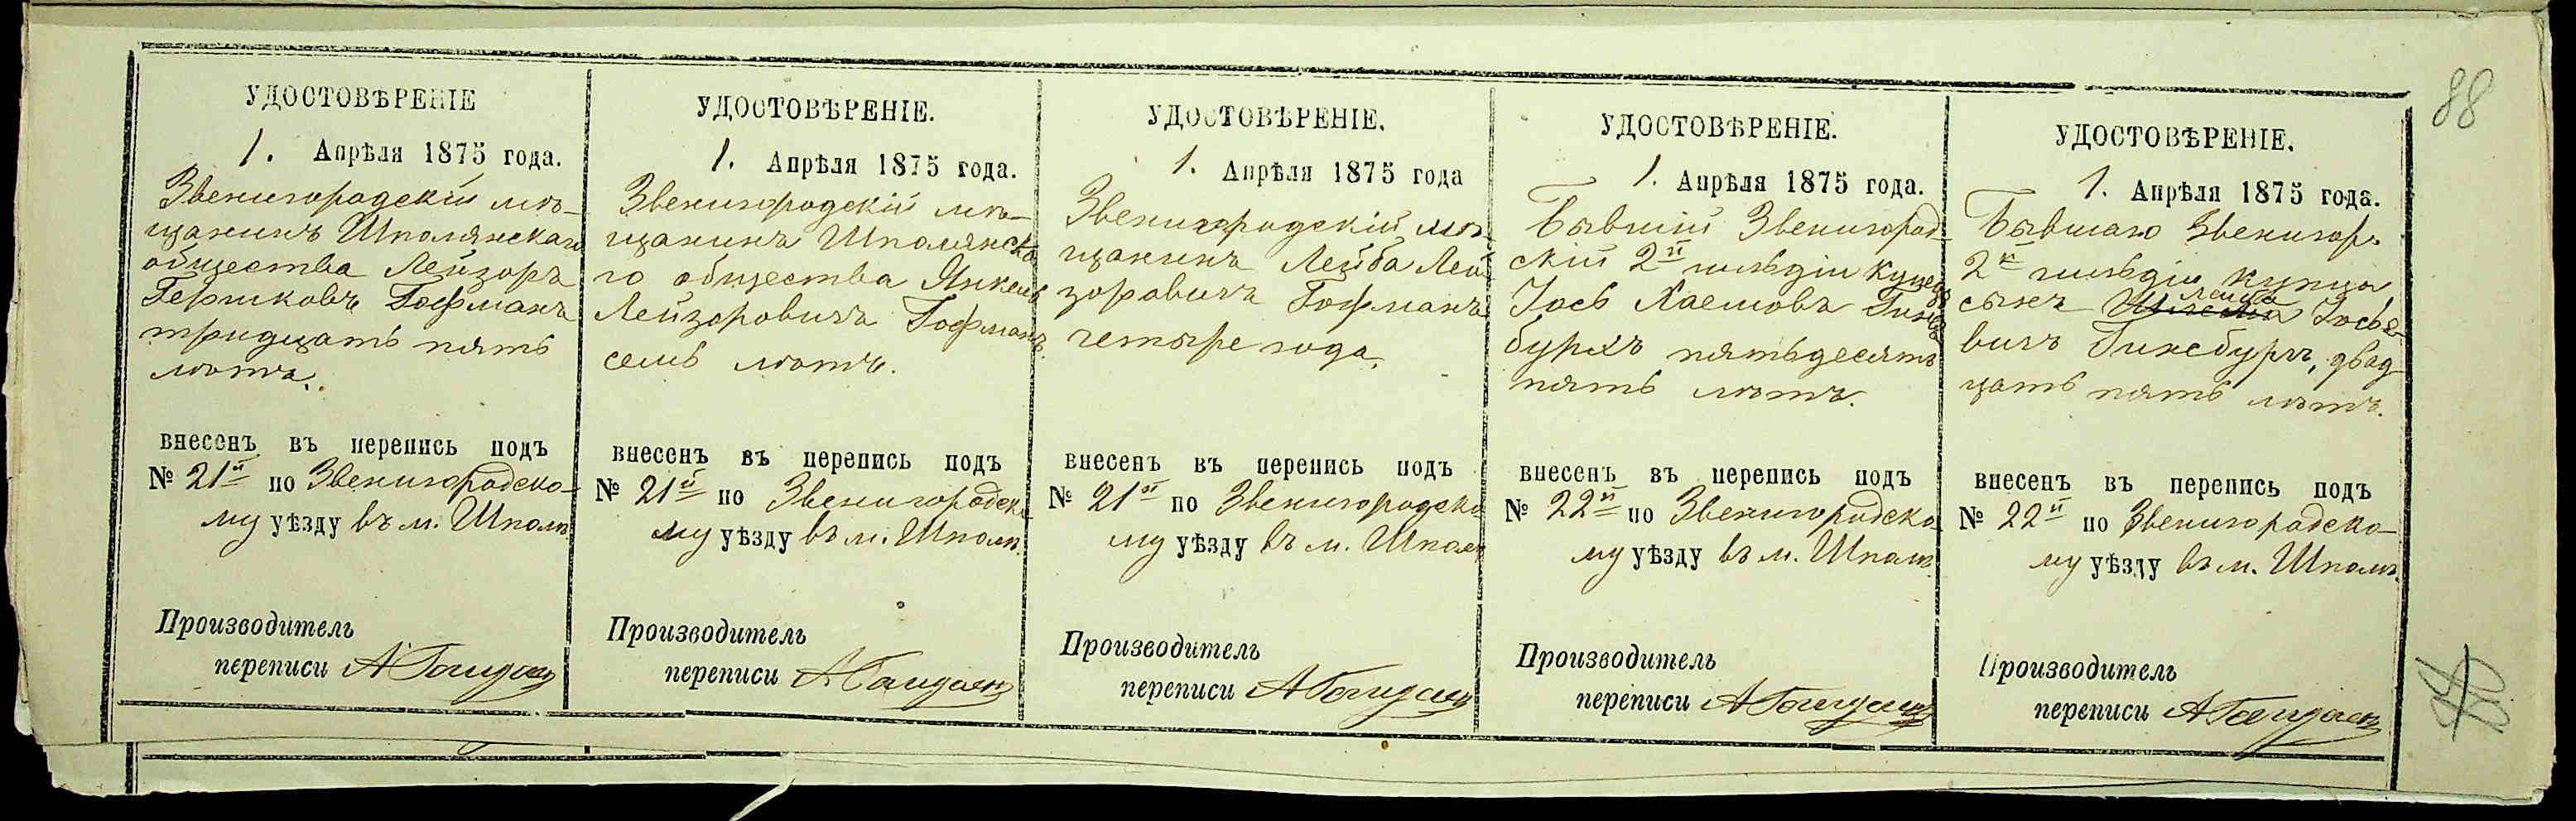 88
УДОСТОВѢРЕНІЕ
1. Апрѣля 1875 года.
Звенигородскій мѣ-
щанинъ Шполянскаго
общества Лейзоръ
Гершковъ Гофманъ
тридцать пять
лѣтъ.
внесенъ въ перепись подъ
№ 21й по Звенигородско-
му уѣзду въ м. Шполѣ
Производитель
переписи
УДОСТОВѢРЕНІЕ.
1. Апрѣля 1875 года.
Звенигородскій мѣ-
щанинъ Шполянска
го общества Янкель
Лейзоровичъ Гофманъ
семь лѣтъ.
внесенъ въ перепись подъ
№ 21й по Звенигородско
му уѣзду въ м. Шполѣ.
Производитель
переписи
УДОСТОВѢРЕНІЕ.
1. Апрѣля 1875 года
Звенигородскій мѣ
щанинъ Лейба Лей
зоровичъ Гофманъ
четыре года.
внесенъ въ перепись подъ
№ 21й по Звенигородско
му уѣзду въ м. Шполѣ
Производитель
переписи
УДОСТОВѢРЕНІЕ.
1. Апрѣля 1875 года.
Бывшій Звенигород-
скій 2й гильдіи купецъ
Іось Хаемовъ Гинз
бургъ пятьдесятъ
пять лѣтъ.
внесенъ въ перепись подъ
№ 22й по Звенигородско
му уѣзду въ м. Шполѣ.
Производитель
переписи
УДОСТОВѢРЕНІЕ.
1. Апрѣля 1875 года.
Бывшаго Звенигор.
2й гильдіи купца
сынъ Іосье-
вичъ Гинсбургъ, двад-
цать пять лѣтъ.
внесенъ въ перепись подъ
№ 22й по Звенигородско-
му уѣзду въ м. Шполѣ.
Производитель
переписи